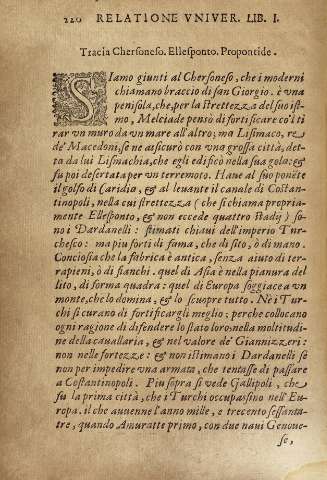 220 RELATIONE VNIVER. LIB. I.
Tracia Chersoneso. Ellesponto. Propontide.
SIamo giunti al Chersoneso, che i moderni
chiamano braccio di san Giorgio. è vna
penisola, che, per la strettezza del suo ist-
mo, Melciade pensò di fortificare cō'l ti
rar vn muro da vn mare all'altro; ma Lisimaco, re
de' Macedoni, se ne assicurò con vna grossa città, det-
ta da lui Lismachia, che egli edificò nella sua gola: &
fu poi desertata per vn terremoto. Haue al suo ponēte
il golfo di Caridia, & al leuante il canale di Costan-
tinopoli, nella cui strettezza (che si chiama propria-
mente Ellesponto, & non eccede quattro stadij) so-
no i Dardanelli: stimati chiaui dell'imperio Tur-
chesco: ma piu forti di fama, che di sito, ò di mano.
Conciosia che la fabrica è antica, senza aiuto di ter-
rapieni, ò di fianchi. quel di Asia è nella pianura del
lito, di forma quadra: quel di Europa soggiace a vn
monte, che lo domina, & lo scuopre tutto. Nè i Tur-
chi si curano di fortificargli meglio; perche collocano
ogni ragione di difendere lo stato loro, nella moltitudi-
ne della cauallaria, & nel valore de' Giannizzeri:
non nelle fortezze: & non istimano i Dardanelli se
non per impedire vna armata, che tentasse di passare
a Costantinopoli. Piu sopra si vede Gallipoli, che
fu la prima città, che i Turchi occupassino nell'Eu-
ropa. il che auuenne l'anno mille, e trecento sessanta-
tre, quando Amuratte primo, con due naui Genoue-
se,